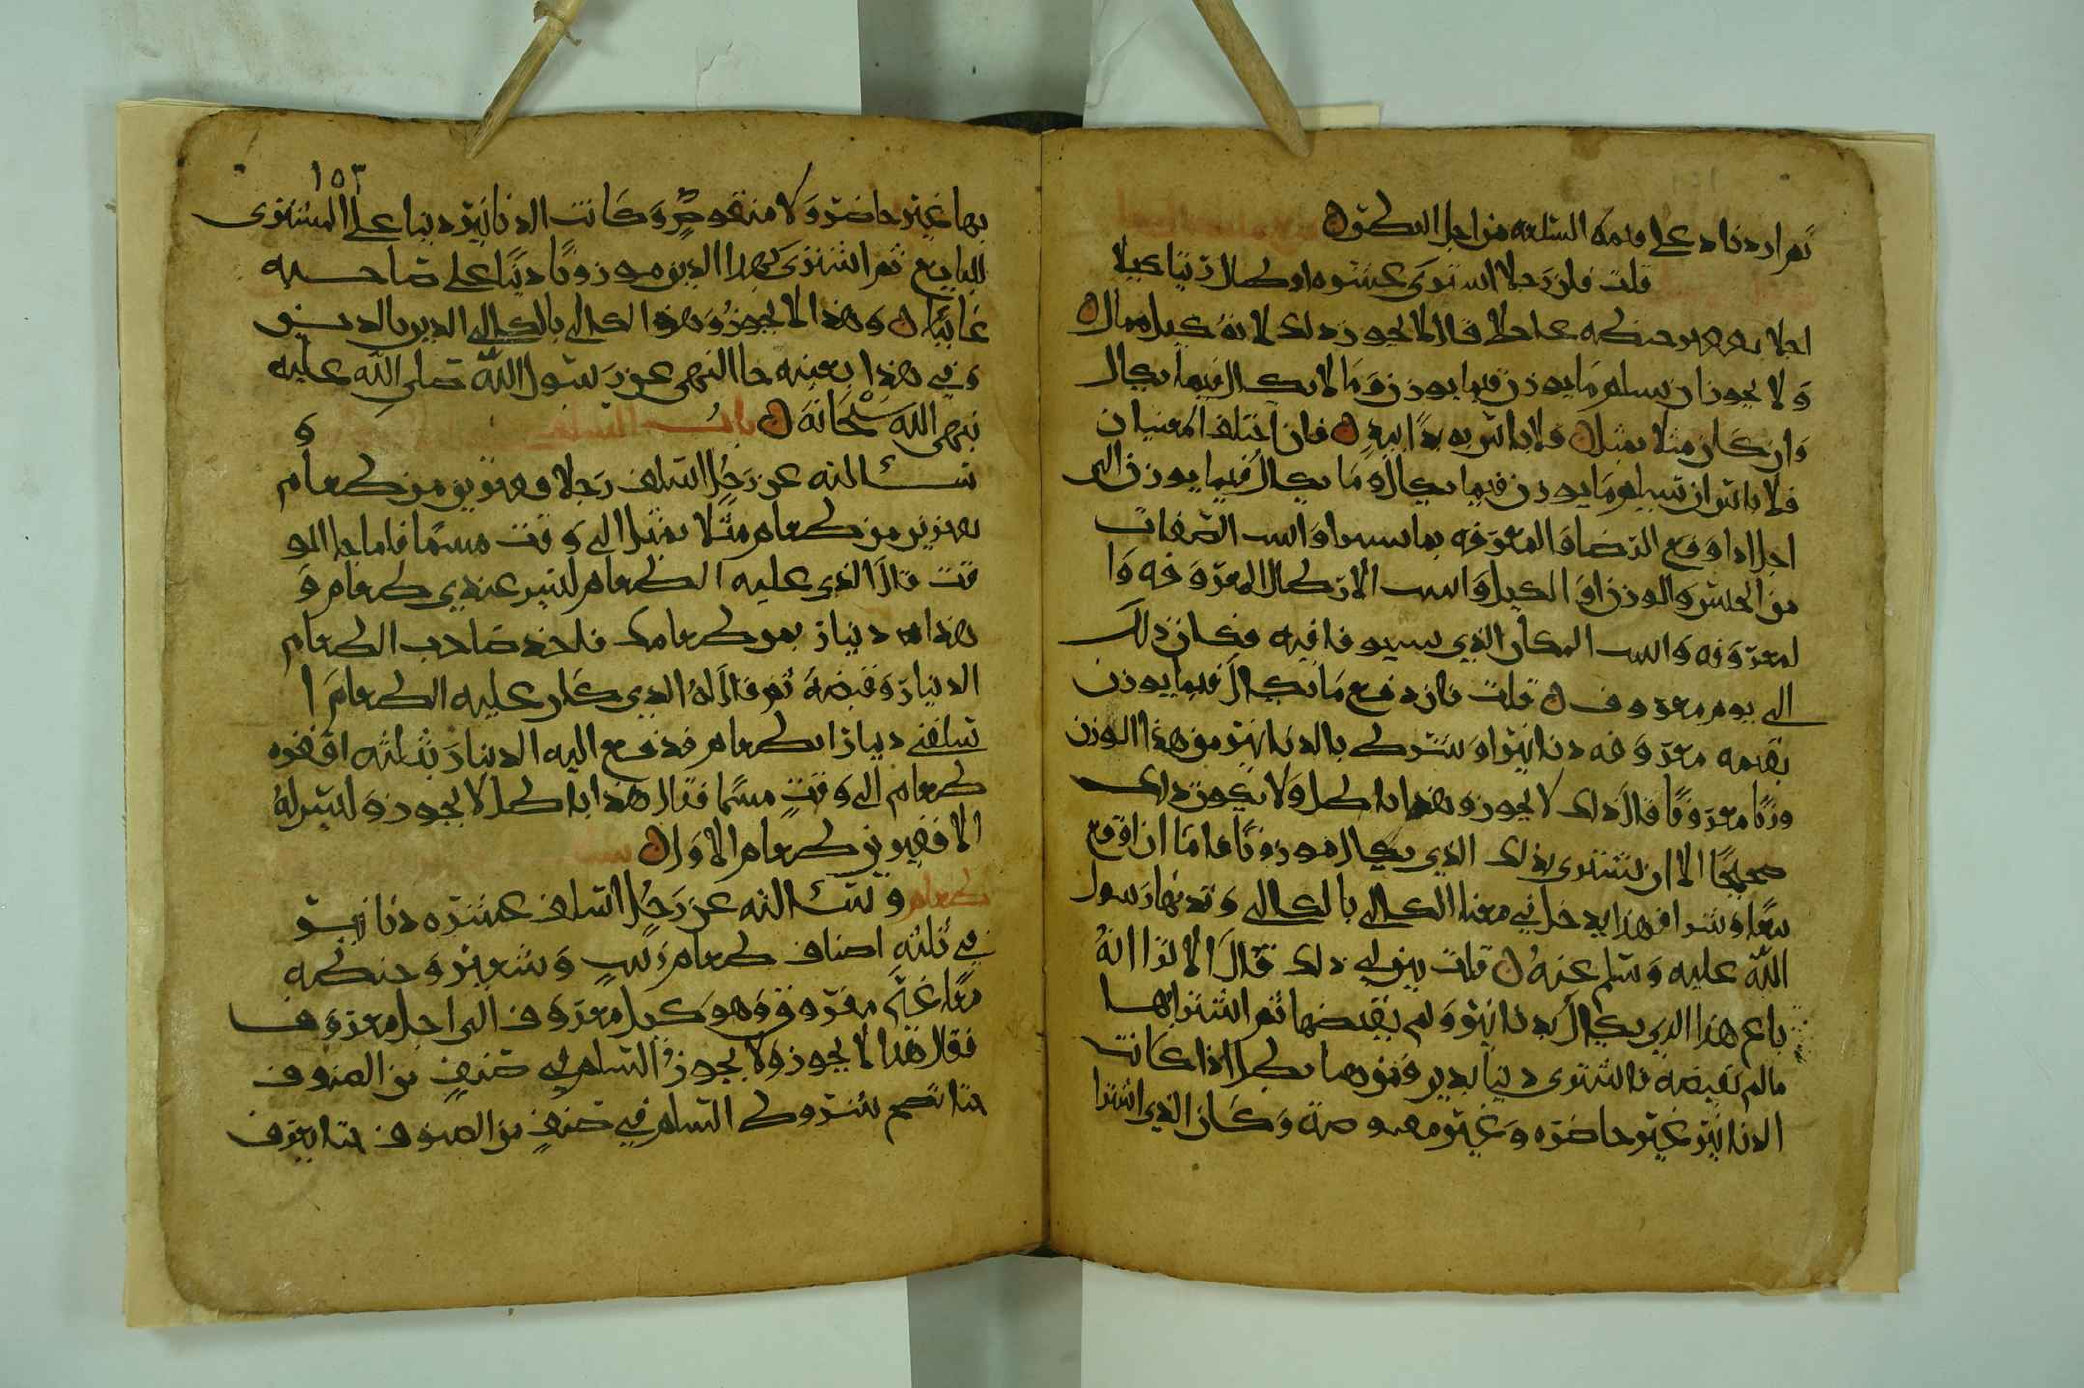 ثم ازددناد على قيمة السلعة من اجل النظرة
قلت فان رجلا اشترى عشره ارطال زيتا كيلا
اجلا بعدد حنطه عاجلا قال لا يجوز ذلك لانه كيل بمال
ولا يجوز ان يسلم ما يوزن فيما يوزن وما لا يكال فيما يكال
وان كان مثلا بمثل ولا باس به يدا بيد فان اختلف المعنيان
فلا باس ان تسلم ما يوزن فيما يكال وما يكال فيما يوزن الى
اجل اذا وقع الرضا والمعرفه بما واست الصفات
من الجنس والوزن او الكيل واست الارطال المعروفه وا
لمعروفه واست المكان الذي يستوفا فيه فكان ذلك
الى يوم معروف قلت فان دفع ما يكال فيما يوزن
بقيمه معروفه دنانير او شرط بالدنانير من هذا الوزن
وزنا معروفا قال ذلك لا يجوز وهذا باطل ولا يكون ذلك
صحيحا الا ان يشترى بذلك الذي يكال موزونا فاما ان اوقع
بيعا وشرا فهذا يدخل في معنا الكالي بالكالي وقد نها رسول
الله عليه وسلم عنه قلت بين لي ذلك قال الا ترا انه
باع هذا الذي يكال بدنانير ولم يقبضها ثم اشترا بها
مالم يقبضه فاشترى دينا بدين فنوهما بطل اذا كانت
الدنانير غير حاضره وغير مقبوضه وكان الذي اشترا
١٥٣
بها غير حاضر ولا منقوص وكانت الدنانير دينا على المشترى
للبايع ثم اشترى بهذا الدين موزونا دينا على صاحبه
غايبا وهذا لا يجوز وهو الكالي بالكالي الدين بالدين
وفي هذا بعينه جا النهى عن رسول الله صلى الله عليه
بنهى الله سبحانه باب السلف و
سالته عن رجل اسلف رجلا قفيزين من طعام
بقفيزين من طعام مثلا بمثل الى وقت مسما فلما جا الو
قت قال الذي عليه الطعام ليس عندي طعام و
هذا دينار بثمن طعامك فاخذ صاحب الطعام
الدينار وقبضه ثم قال له الذي كان عليه الطعام ا
سلفني دينارا بطعام فدفع اليه الدينار بثلثه اقفزه
طعام الى وقت مسما فقال هذا باطل لا يجوز وليس له
الا قفيزين طعام الاول
طعام وسالته عن رجل اسلف عشره دنانير
في ثلثه اصناف طعام زبيب وشعير وحنطه
معا غير مفروق وهو كيل معروف الى اجل معروف
فقال هذا لا يجوز ولا يجوز السلم في صنف من الصنوف
حتا تصح شروط السلم في صنف من الصنوف حتا يعرف